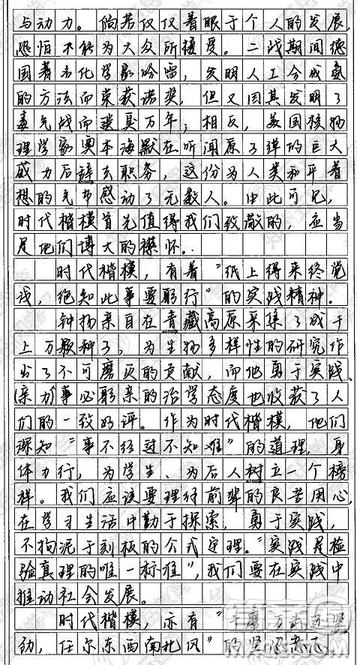 与动力。倘若仅仅着眼于个人的发展
恐怕不能为大众所接受。二战期间德
国著名化学家哈雷，发明人工合成氨
的方法而荣获诺奖，但又因其发明了
毒气战而遗臭万年，相反，美国核物
理学家奥本海默在听闻原子弹的巨大
威力后辞去职务，这份为人类和平着
想的气节感动了无数人。由此可见，
时代楷模首先值得我们致敬的，应当
是他们博大的襟怀。
时代楷模，有着“纸上得来终觉
浅，绝知此事要躬行”的实践精神。
钟扬亲自在青藏高原采集了成千
上万颗种子，为生物多样性的研究作
出了不可磨灭的贡献，而他勇于实践
亲力事必躬亲的治学态度也收获了人
们的一致好评。作为时代楷模，他们
深知“事不经过不知难”的道理，身
体力行，为学生、为后人树立一个榜
样。我们应该要理解前辈的良苦用心
在学习生活中勤于探索，勇于实践，
不拘泥于刻板的公式定理。“实践是检
验真理的唯一标准”，我们要在实践中
推动社会发展。
时代楷模，亦有“千磨万击还坚
劲，任尔东西南北风”的坚忍志